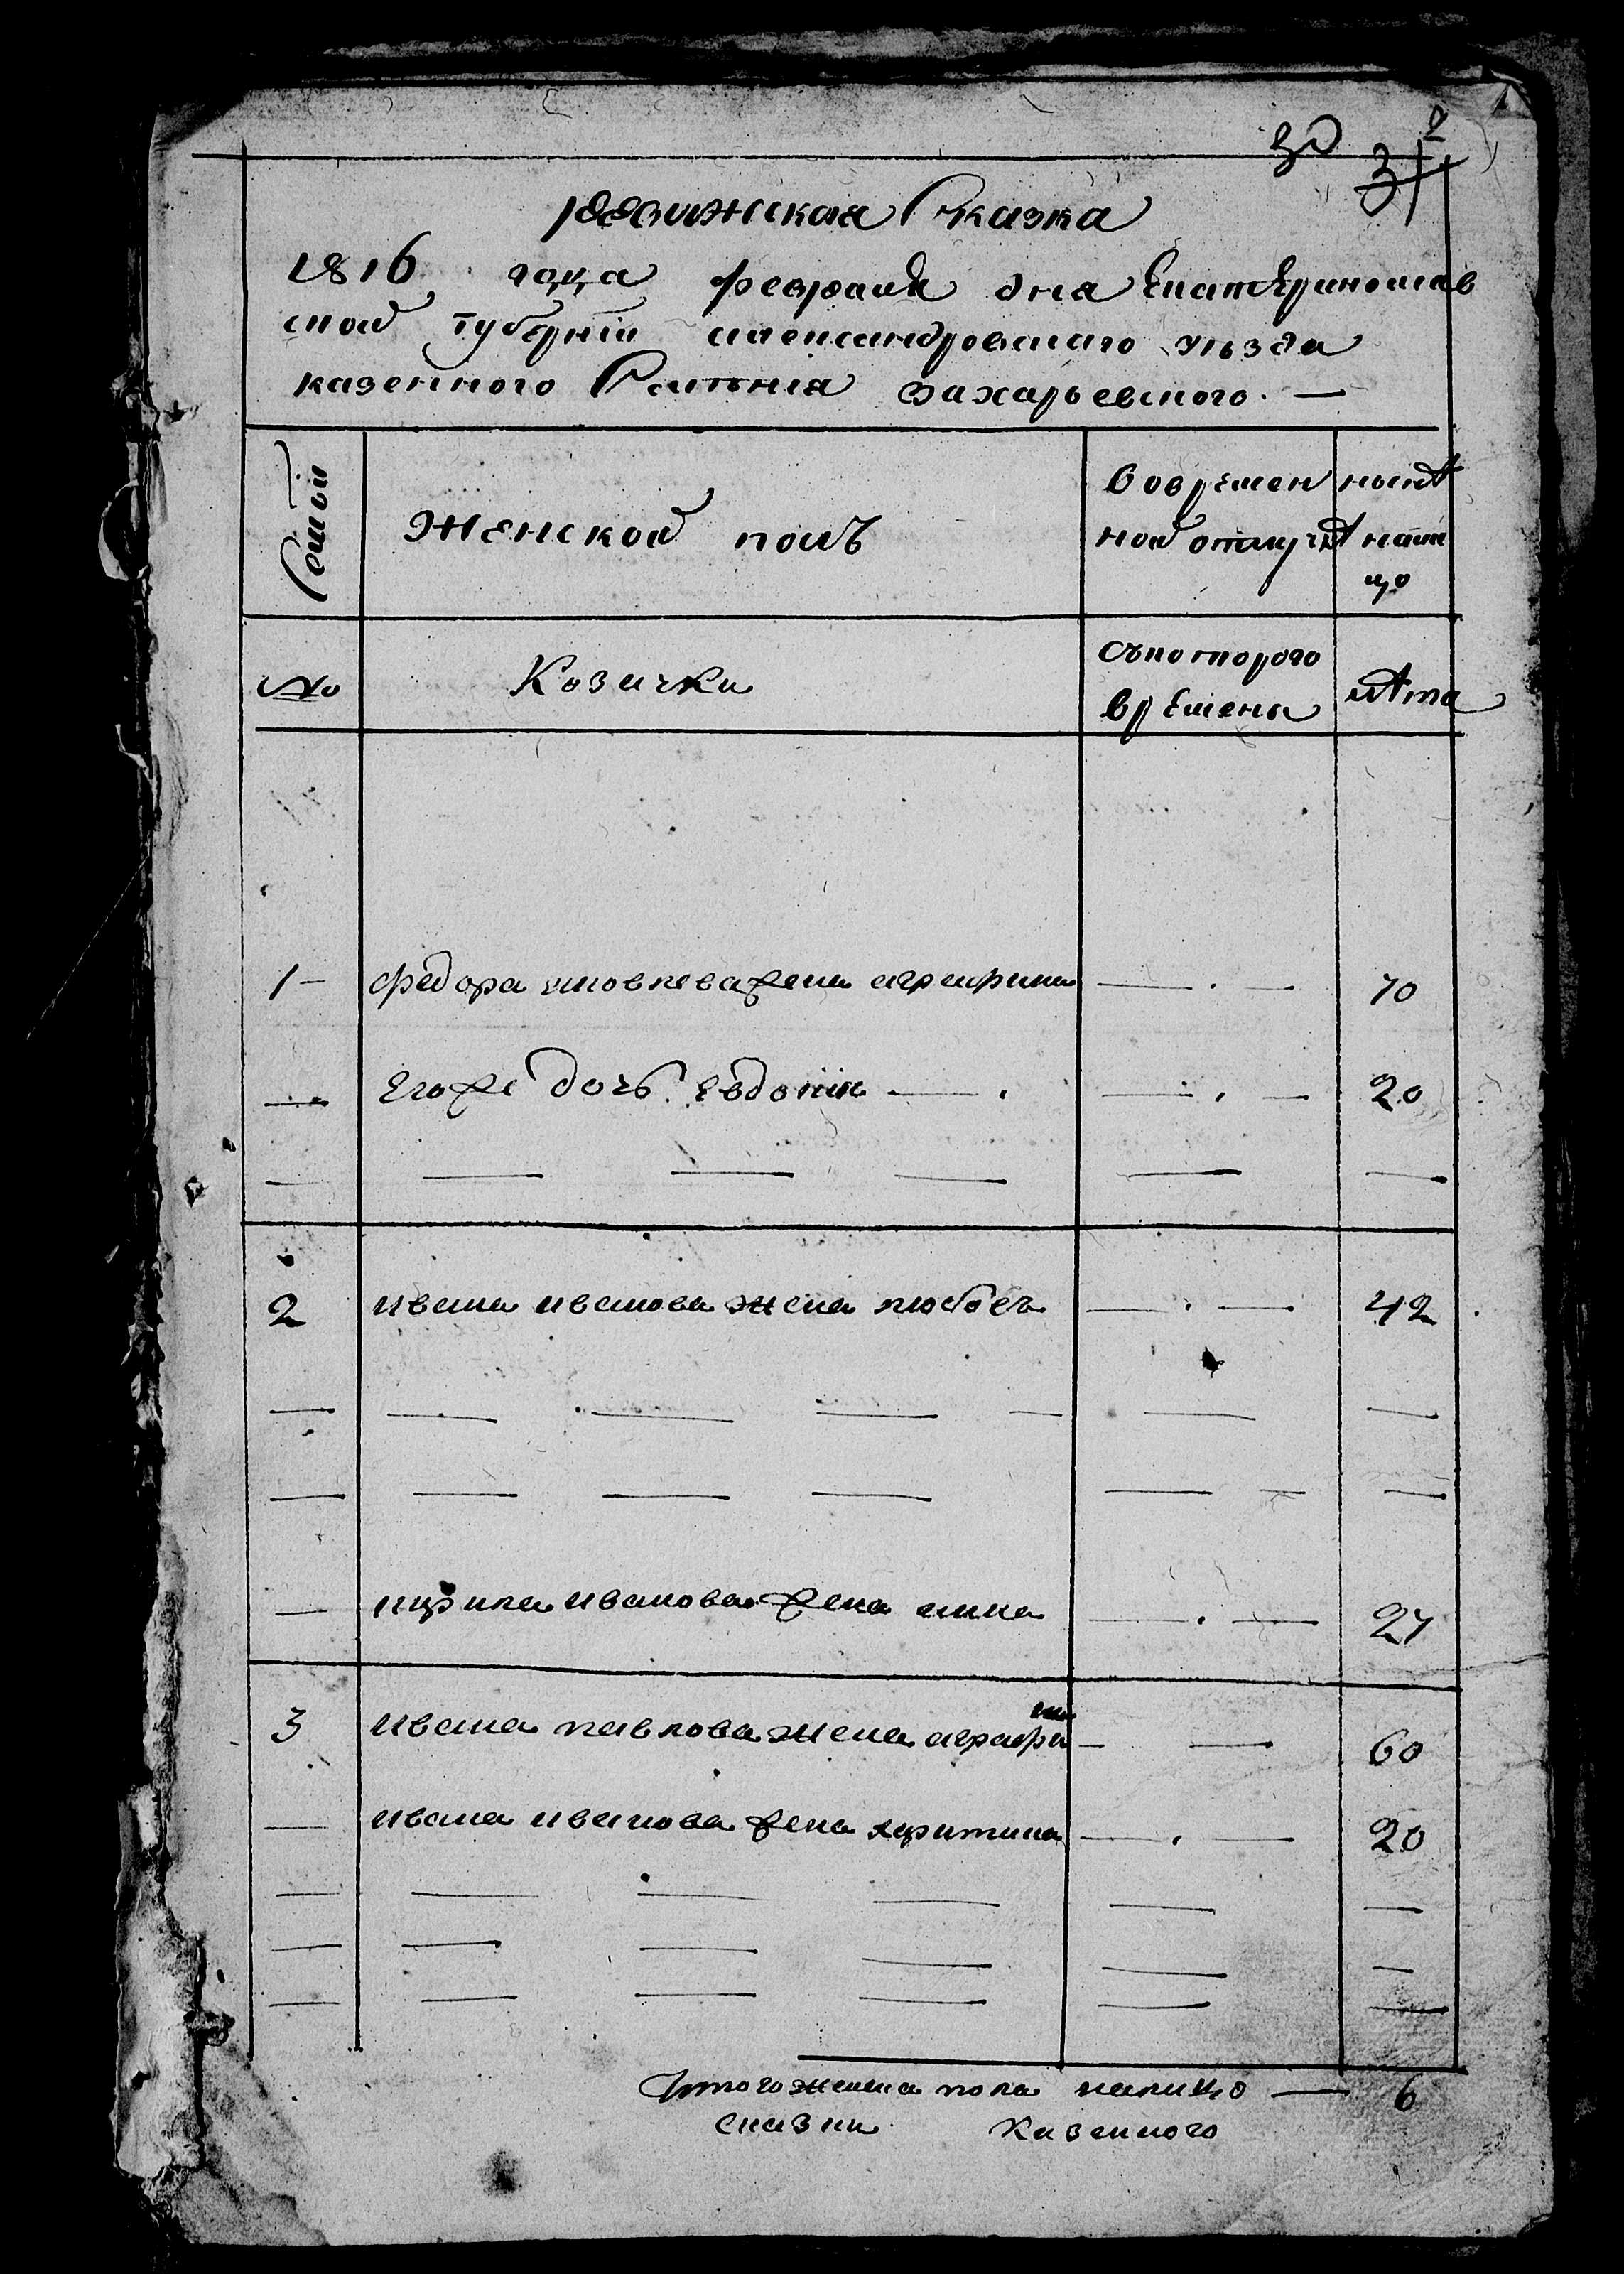 30 31 2
ревижская Сказка
1816 года февраля дня Екатеринослав
ской губернiи александровскаго уѣзда
казенного Селенiя захарьевского. —
Семьи
Женской полъ
Вовремен
ной отлучкѣ
нынѣ
нали
цо
№
Козачки
Съкоторого
времены
лѣта
1 — федора яковлева жена аграфина — . — 70
— Егоже дочь Евдокiя — . — . — 20
— — — — — —
2 ивана иванова жена любовъ — . — 42
— — — — — — —
— — — — — — —
— иванова жена анна — . — 27
3 ивана павлова жена аграфина — — 60
— ивана иванова жена хритина — . — 20
— — — — — —
— — — — — —
— — — — — —
Итого женска пола налицо — 6
сказки казенного